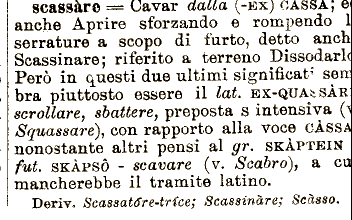 scassàre = Cavar dalla (-EX) CASSA; e
anche Aprire sforzando e rompendo l
serrature a scopo di furto, detto anch
Scassinare; riferito a terreno Dissodarl
Però in questi due ultimi significat' sem
bra piuttosto essere il lat. EX-QUASSÀR
scrollare, sbattere, preposta s intensiva (v
Squassare), con rapporto alla voce CÀSSA
nonostante altri pensi al gr. SKÀPTEIN
fut. SKÀPSÔ - scavare (v. Scabro), a cu
mancherebbe il tramite latino.
Deriv. Scassatóre-tríce; Scassinàre; Scàsso.